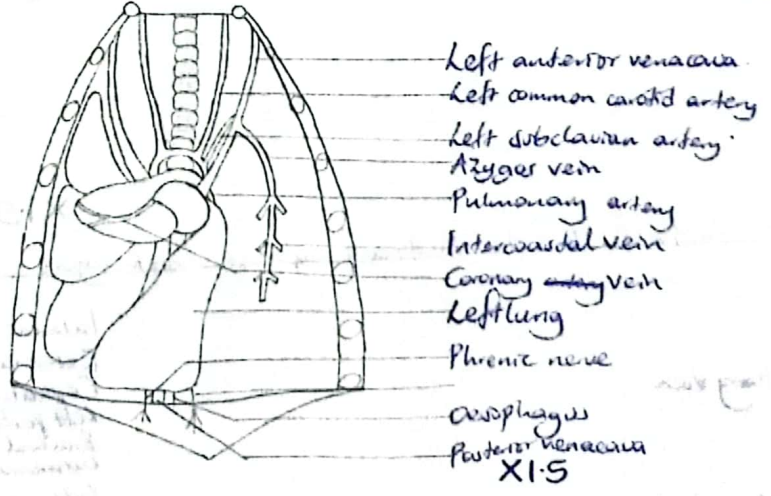 Left anterior venacava
Left common carotid artery
Left subclavian artery
Azygos vein
Pulmonary artery
Intercoastal vein
Coronary artery vein
Left lung
Phrenic nerve
Oesophagus
Posterior venacava
XI.5